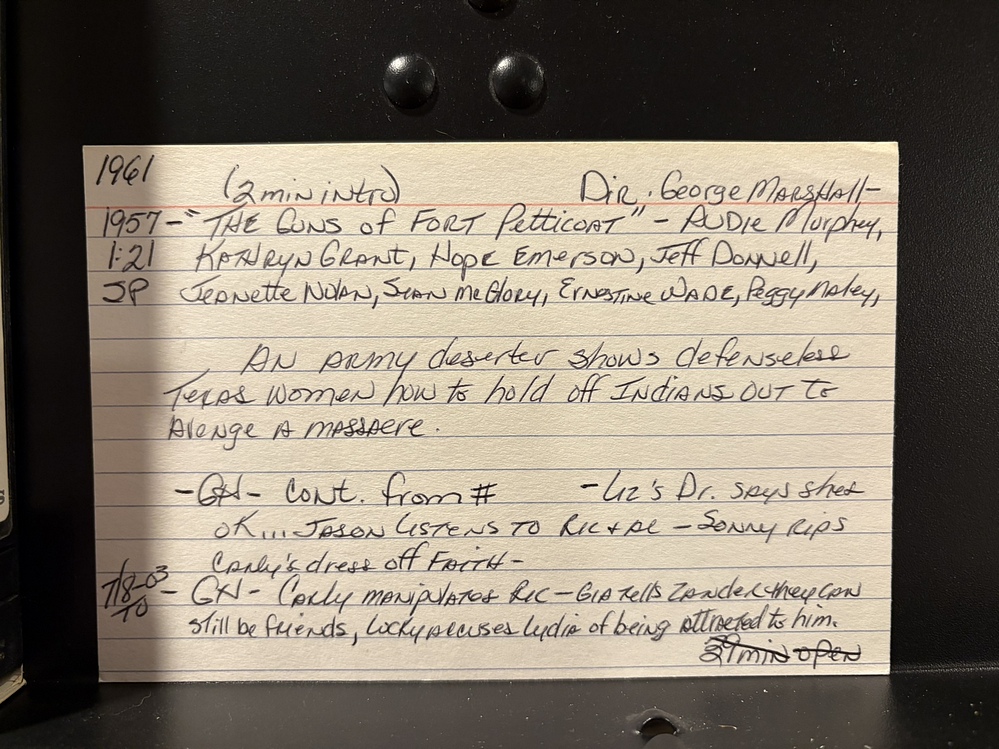 1961
(2 min intro) Dir. George Marshall-
1957-"THE GUNS of FORT Petticoat" - AUDIE Murphey,
1:21 KATHRYN GRANT, Hope Emerson, Jeff Donnell,
JP Jeanette Nolan, Sean McGlory, Ernestine Wade, Peggy Maley,
AN ARMY deserter shows defenseless
Texas women how to hold off INDIANS OUT to
Avenge A massacre.
-GH- cont. from # -Liz's Dr. says shes
OK... JASON LISTENS TO RIC & AL - Sonny Rips
Carly's dress off FAITH-
7/8-03 - GH- Carly manipulates Ric - Gia tells Zander they can
TO still be friends, Lucky accuses Lydia of being attracted to him.
29 min open